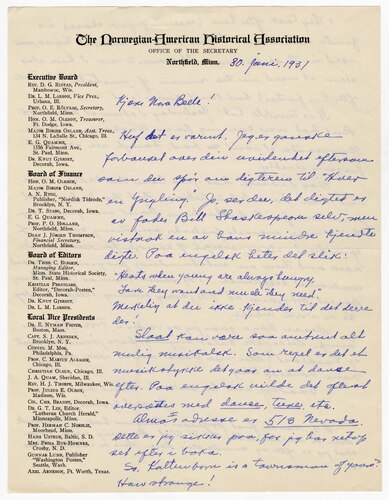 The Norwegian-American Historical Association
OFFICE OF THE SECRETARY
Northfield, Minn.
30. juni, 1931
Executive Board
REV. D. G. RISTAD, President,
Manitowoc, Wis.
DR. L. M. LARSON, Vice Pres.,
Urbana, Ill.
PROF. O. E. RÖLVAAG, Secretary,
Northfield, Minn.
HON. O. M. OLESON, Treasurer,
Ft. Dodge, Iowa.
MAJOR BIRGER OSLAND, Asst. Treas.,
134 N. LaSalle St., Chicago, Ill.
E. G. QUAMME,
1596 Fairmount Ave.,
St. Paul, Minn.
DR. KNUT GJERSET,
Decorah, Iowa.
Board of Finance
HON. O. M. OLESON,
MAJOR BIRGER OSLAND,
A. N. RYGG,
Publisher, "Nordisk Tidende,"
Brooklyn, N. Y.
DR. T. STABO, Decorah, Iowa.
E. G. QUAMME,
PROF. P. O. HOLLAND,
Northfield, Minn.
DEAN J. JÖRGEN THOMPSON,
Financial Secretary,
Northfield, Minn.
Board of Editors
DR. THEO. C. BLEGEN,
Managing Editor,
Minn. State Historical Society
St. Paul, Minn.
KRISTIAN PRESTGARD,
Editor, "Decorah-Posten,"
Decorah, Iowa.
DR. KNUT GJERSET,
DR. L. M. LARSON.
Local Vice Presidents
DR. E. NYMAN FIGVED,
Boston, Mass.
CAPT. S. J. ARNESEN,
Brooklyn, N. Y.
CONSUL M. MOE,
Philadelphia, Pa.
PROF. C. MARTIN ALSAGER,
Chicago, Ill.
CHRISTIAN OLSEN, Chicago, Ill.
J. A. QUAM, Sheridan, Ill.
REV. H. J. THORPE, Milwaukee, Wis.
PROF. JULIUS E. OLSON,
Madison, Wis.
COL. CHR. BRANDT, Decorah, Iowa.
DR. G. T. LEE, Editor,
"Lutheran Church Herald,"
Minneapolis, Minn.
PROF. HERMAN C. NORDLIE,
Moorhead, Minn.
HANS USTRUD, Baltic, S. D.
MRS. FRIDA BUE-HOMNES,
Crosby, N. D.
GUNNAR LUND, Publisher
"Washington Posten,"
Seattle, Wash.
AXEL ARNESON, Ft. Worth, Texas.
Kjære Nora Belle!
Huf det er varmt. Jeg er ganske
forbauset over din uvidenhet eftersom
som du spør om digteren til "Hver
en Yngling." Jo, ser du, det digtet er
av fader Bill Shakespeare selv, men
vistnok en av hans mindre kjendte
digte. Paa engelsk heter det slik:
"Hearts when young are always hungry,
Fare they want and much they need."
Merkelig at du ikke kjender til det verre
du!
Slaat kan være saa omtrent alt
mulig musikalsk. Som regel er det et
musikstykke det gaar an at danse
efter. Paa engelsk vilde det oftest
oversættes med dance, tune, etc.
Almas adresse er 513 Nevada
dette er jeg sikker paa, for jeg har netop
set efter i boka.
So, Kaltenborn is a townsman of yours?
How strange!